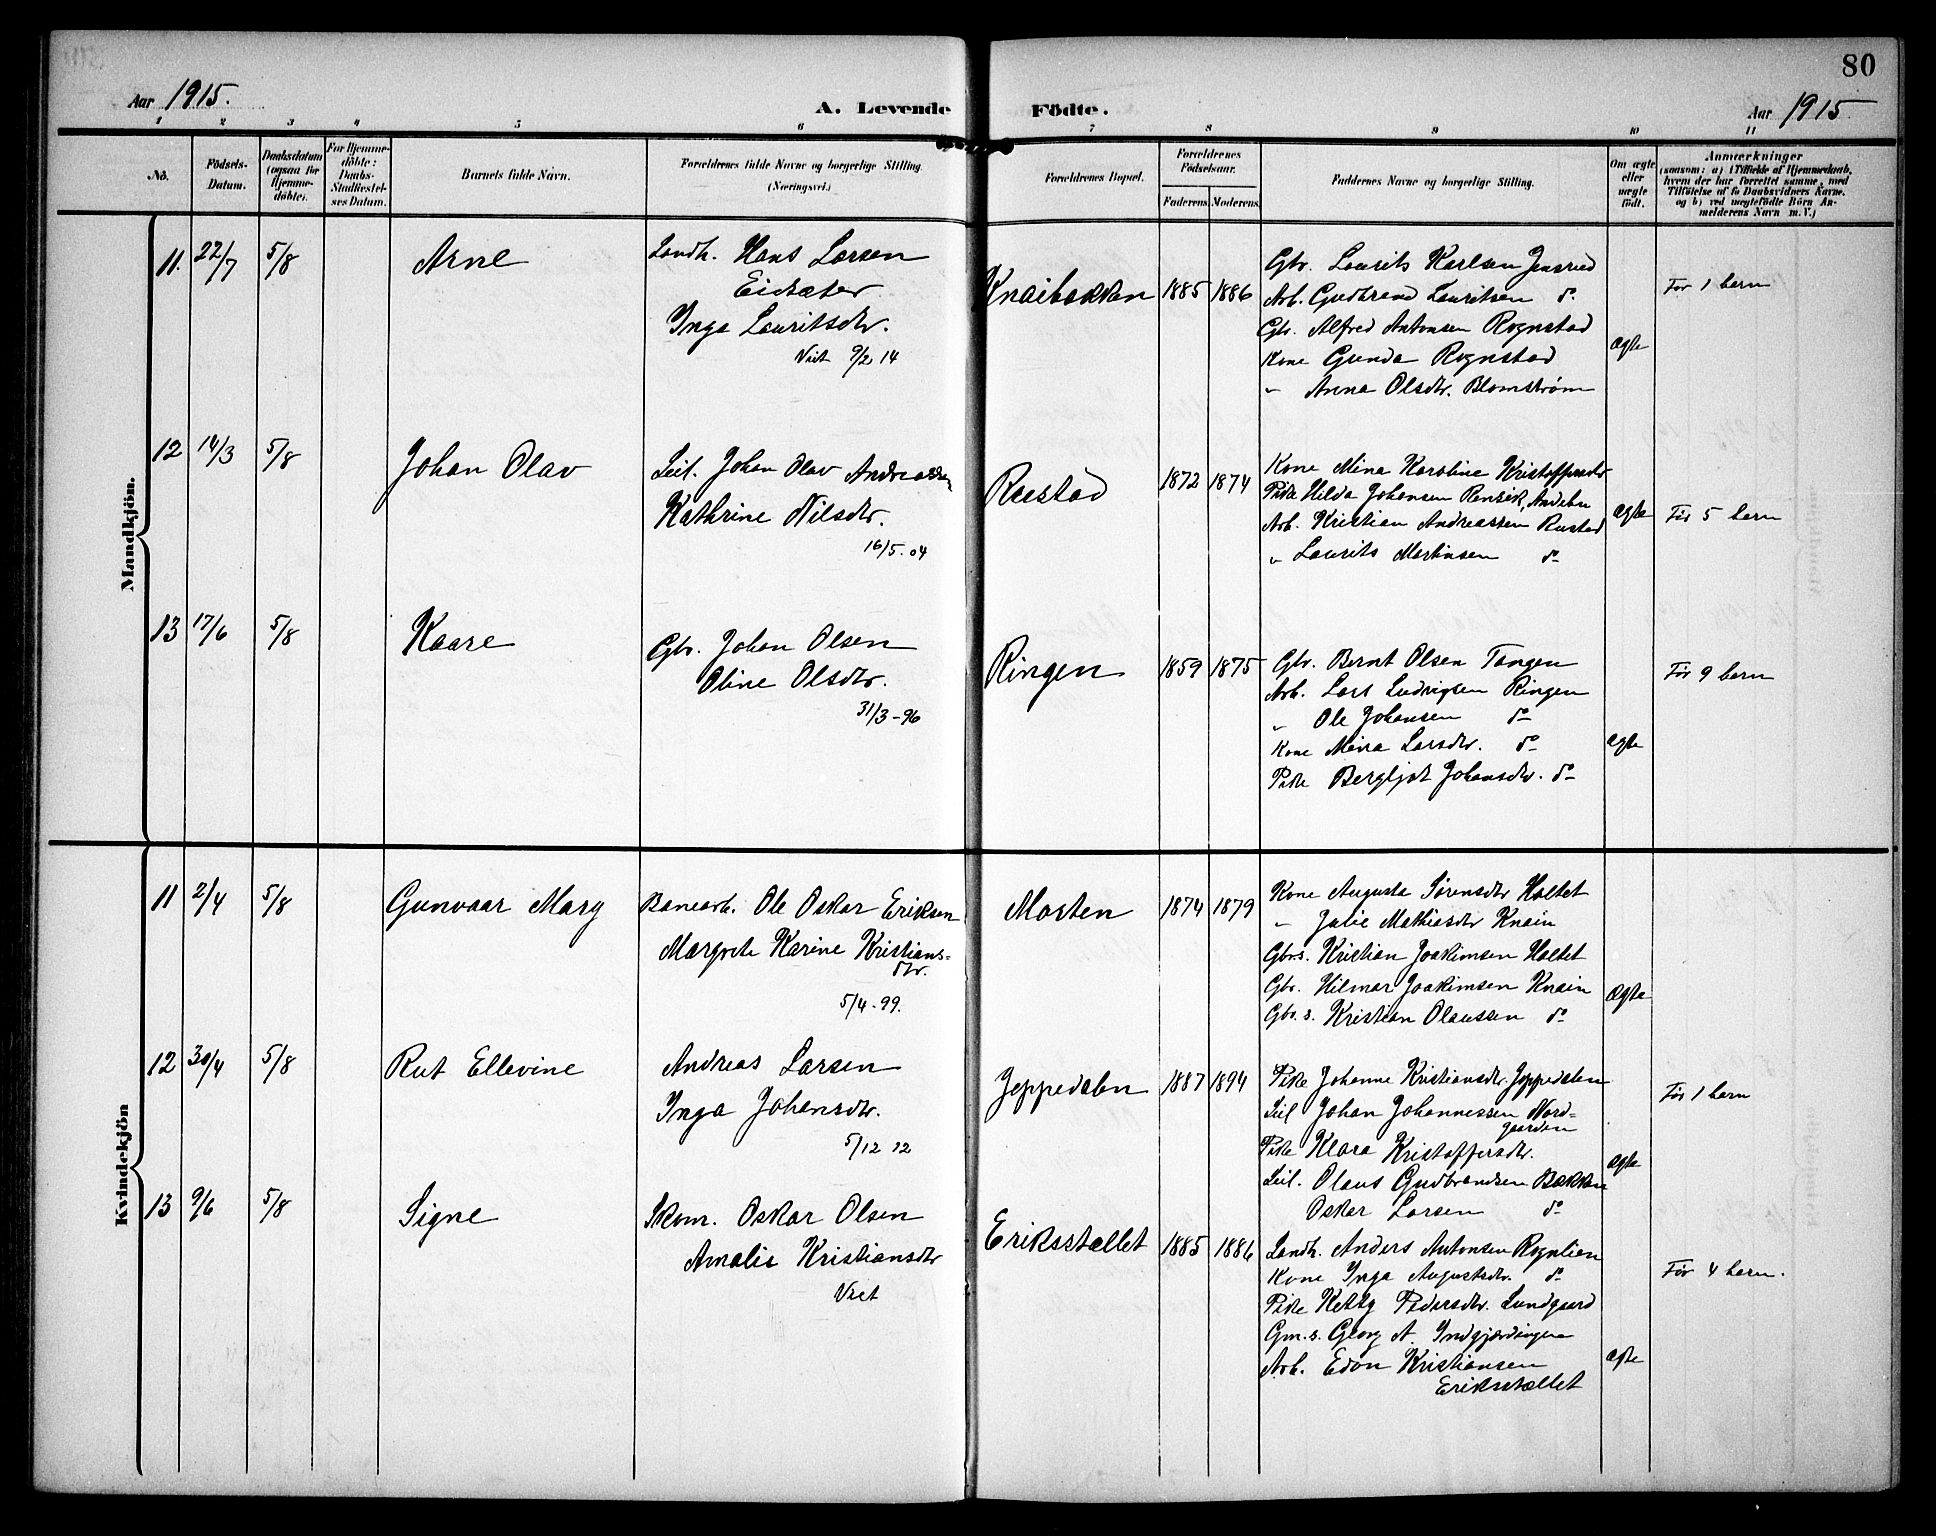 80
Aar 1915.
A. Levende Födte.
Aar 1915
1 2 3 4 5 6 7 8 9 10 11
No.
Födsels-Datum.
Daabsdatum (ogsaa for Hjemme-döbte).
For Hjemme-döbte: Daabs-Stadfæstel-ses Datum.
Barnets fulde Navn.
Forældrenes fulde Navne og borgerlige Stilling. (Næringsvei.)
Forældrenes Bopæl.
Forældrenes Födselsaar.
Faderens. Moderens.
Faddernes Navne og borgerlige Stilling.
Om ægte eller uægte födt.
Anmærkninger
(saasom: a) i Tilfælde af Hjemmedaab, hvem der har forrettet samme, med Tilföielse af to Daabsvidners Navne, og b) ved uægtefödte Börn Anmelderens Navn m. V.)
Mandkjön.
11. 22/7 5/8 Arne
Landh. Hans Larsen
Eidsæter
Inga Lauritsdtr.
Viet 9/2 14
Knaibakken 1885 1886
Gbr. Laurits Karlsen Jensrud
Arb. Gudbrand Lauritsen do.
Gbr. Alfred Antonsen Rognstad
Kone Gunda Rognstad
" Anna Olsdtr. Blomstrøm
ægte
Før 1 barn
12 14/3 5/8 Johan Olav
Leil. Johan Olav Andreassen
Kathrine Nilsdtr.
16/5.04
Rustad 1872 1874
Kone Mina Karoline Kristoffersdtr
Pike Hilda Johansen Andebu
Arb. Kristian Andreassen Rustad
" Laurits Martinsen do
ægte
Før 5 barn
13 17/6 5/8 Kaare
Gbr. Johan Olsen
Oline Olsdtr.
31/3-96
Ringen 1859 1875
Gbr. Bernt Olsen Tangen
Arb. Lars Ludvigsen Ringen
" Ole Johansen do
Kone Mina Larsdtr. do
Pike Bergljot Johansdtr. do
ægte
Før 9 barn
Kvindekjön
11 2/4 5/8 Gunvaar Mary
Banearb. Ole Oskar Eriksen
Margrete Karine Kristians-
dtr.
5/4-99.
Morten 1874 1879
Kone Augusta Sørensdtr Holtet
" Julie Mathiasdtr Knain
Gbr.s. Kristian Joakimsen Holtet
Gbr. Hilmar Joakimsen Knain
Gbr.s. Kristian Olaussen do
ægte
12 30/4 5/8 Rut Ellevine
Andreas Larsen
Inga Johansdtr.
5/12 12
Jeppedalen 1887 1894
Pike Johanne Kristiansdtr. Jeppedalen
Leil Johan Johannessen Nord-
gaarden
Pike Klara Kristoffersdtr.
Leil. Olaus Gudbrandsen Bakken
Oskar Larsen do
ægte
Før 1 barn
13 9/6 5/8 Signe
Skom. Oskar Olsen
Amalie Kristiansdtr
Viet
Eriksstallet 1885 1886
Landh. Anders Antonsen Rognlien
Kone Inga Augustsdtr. do
Pike Ketty Pedersdtr. Lundgaard
Gm.s. Georg A. Indgjærdingen
Arb. Edon Kristiansen
Eriksstallet
ægte
Før 4 barn.